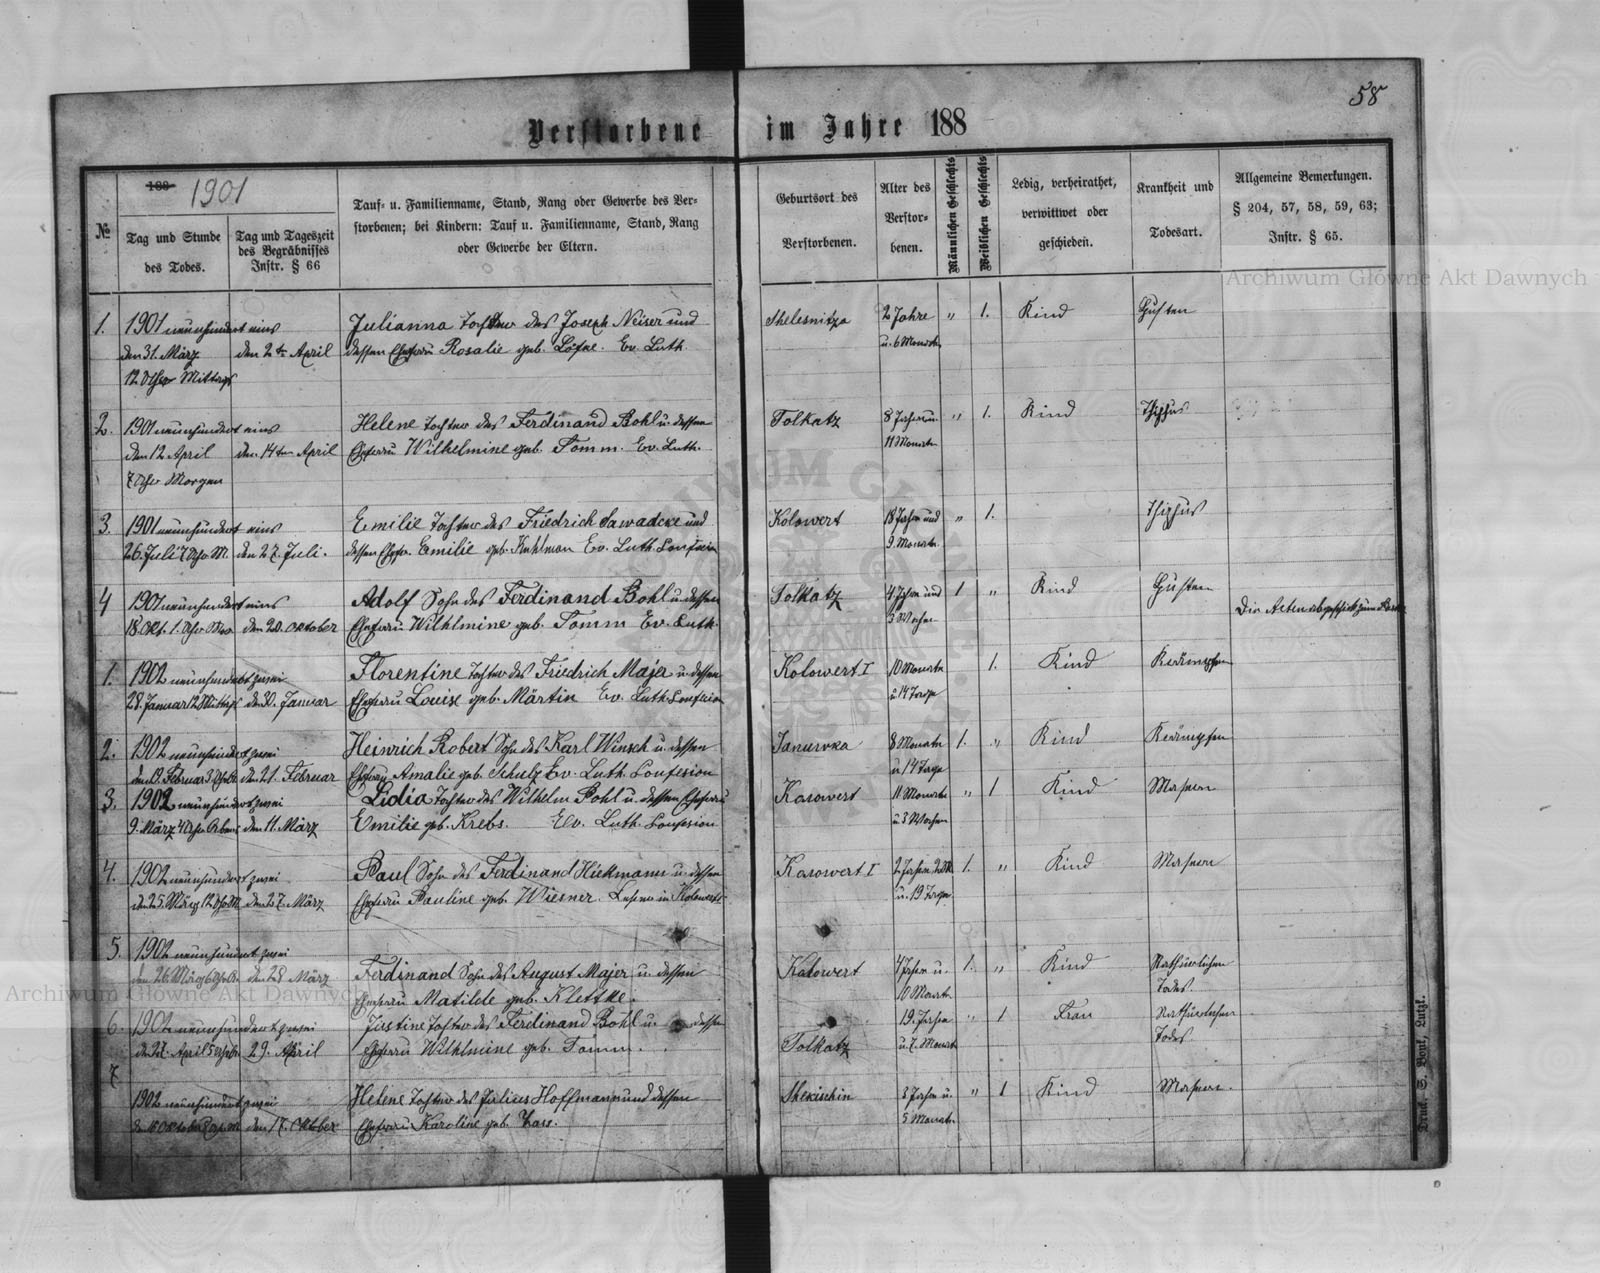 58
Verstorbene im Jahre 188
№
188 1901
Tag und Stunde
des Todes.
Tag und Tageszeit
des Begräbnisses
Instr. § 66
Tauf- u. Familienname, Stand, Rang oder Gewerbe des Ver-
storbenen; bei Kindern: Tauf u. Familienname, Stand, Rang
oder Gewerbe der Eltern.
Geburtsort des
Verstorbenen.
Alter des
Verstor-
benen.
Männlichen Geschlechts
Weiblichen Geschlechts
Ledig, verheirathet,
verwittwet oder
geschieden.
Krankheit und
Todesart.
Allgemeine Bemerkungen.
§ 204, 57, 58, 59, 63;
Instr. § 65.
Archiwum Główne Akt Dawnych
1. 1901 neunhundert eins Julianna Tochter des Joseph Neiser und Shelesnitza 2 Jahre „ 1. Kind Husten
den 31. März den 2ten April dessen Ehefrau Rosalie geb. Ev. Luth. u. 6 Monate
12 Uhr Mittags
2. 1901 neunhundert eins Helene Tochter des Ferdinand Bohl u. dessen Tolkatz 8 Jahre u. „ 1. Kind Thiphus
den 12 April den 14ten April Ehefrau Wilhelmine geb. Tomm. Ev. Luth. 11 Monate
7 Uhr Morgen
3. 1901 neunhundert eins Emilie Tochter des Friedrich Sawadcke und Kolowert 18 Jahre und „ 1. Thiphus
26. Juli 7 Uhr M. den 27. Juli. dessen Ehefr. Emilie geb. Kuhlman Ev. Luth. Confesion 9. Monate
4 1901 neunhundert eins Adolf Sohn des Ferdinand Bohl u. dessen Tolkatz 4 Jahre und 1 „ Kind Husten
18. Okt. 1. Uhr den 20. Oktober Ehefrau Wilhlmine geb. Tomm Ev. Luth. 3 Wochen Die Akten abgeschickt zum
1. 1902 neunhundert zwei Florentine Tochter des Friedrich Majer u. dessen Kolowert I 10 Monate 1. Kind Krämpfen
28. Januar 12 Mittags den 30. Januar Ehefrau Louise geb. Märtin Ev. Luth. Confesion u. 14 Tage
2. 1902 neunhundert zwei Heinrich Robert Sohn des Karl Winsch u. dessen Januwka 8 Monate 1. „ Kind Krämpfen
den 19. Februar 3 Uhr den 21. Februar Ehefrau Amalie geb. Schulz Ev. Luth. Confesion u. 14 Tage
3. 1902 neunhundert zwei Lidia Tochter des Wilhelm Pohl u. dessen Ehefrau Karowert 11 Monate „ 1 Kind Masern
9. März 4 Uhr den 11. März Emilie geb. Krebs. Ev. Luth. Confesion u. 3 Wochen
4. 1902 neunhundert zwei Paul Sohn des Ferdinand Hiekmann u. dessen Karowert I 2 Jahre 1. „ Kind Masern
den 25. März 12 Uhr den 27. März Ehefrau Pauline geb. Wiesner. Lehrer in Kolowert u. 19 Tage
5. 1902 neunhundert zwei
den 26. März den 28 März Ferdinand Sohn des August Majer u. dessen Kalowert 4 Jahre u. 1. „ Kind Nathürlichen
Ehefrau Matilde geb. Klettke. 10 Monate Todes.
Archiwum Główne Akt Dawnych
6. 1902 neunhundert zwei Justine Tochter des Ferdinand Bohl u. dessen 19. Jahre „ 1 Frau Nathürlichen
den 27. April 5 Uhr 29. April Ehefrau Wilhlmine geb. Tomm. Tolkatz u. 7. Monate Todes.
7
1902 neunhundert zwei Helene Tochter des Julius Hoffmann und dessen Shekischin 3 Jahre u. „ 1 Kind Masern.
Oktober den 17. Oktober Ehefrau Karoline geb. 5 Monate
Druk. S. Bonk, Lutzk.